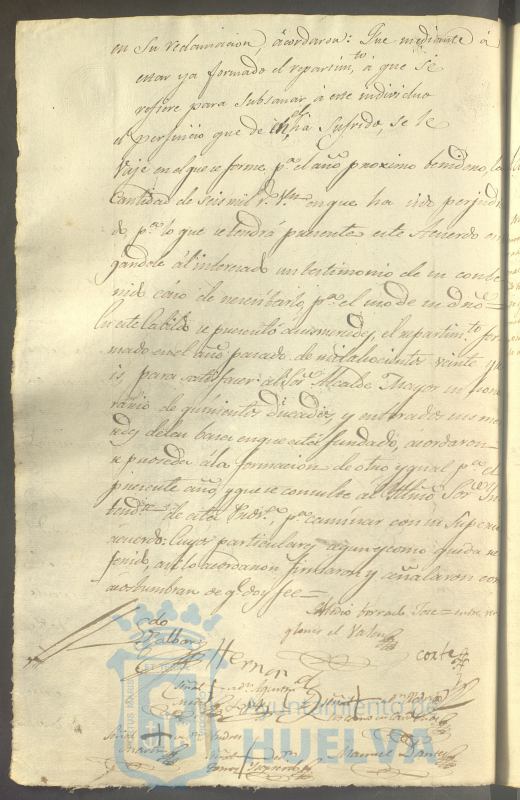 en su reclamacion, acordaron: Que mediante á
estar ya formado el repartim.to á que se
refiere para subsanar á este individuo
el perjuicio que de el ha sufrido, se le
vaje en el que se forme p.a el año proximo benidero, la
Cantidad de seis mil r.s v.n en que ha sido perjudi
do, p.a lo que se tendrá presente este Acuerdo en
gandole al interesado un testimonio de su conte
nido caso de necesitarlo p.a el uso de su dro.=
En este Cabildo se presentó á sus mercedes, el repartim.to for
mado en el año pasado de mil ochocientos veinte y
is, para satisfacer al Sor. Alcalde Mayor su hono
rario de quinientos Ducados, y enterados sus merce
des de la base en que está fundado, acordaron
se proceda á la formacion de otro ygual p.a el
presente año, y que se consulte al Yllmo Sor In
tend.te de esta Prov.a, p.a caminar con su Superior
acuerdo: Cuyos particulares aqui y como queda re
ferido, asi lo acordaron firmaron y señalaron como
acostumbran de q.e doy fee=
Medio borrado Jose= entre ren
glones el Vale
Hernand
Corte
Señal
Señal
Señal
Señal
Manuel
Ayuntamiento de
HUELVA